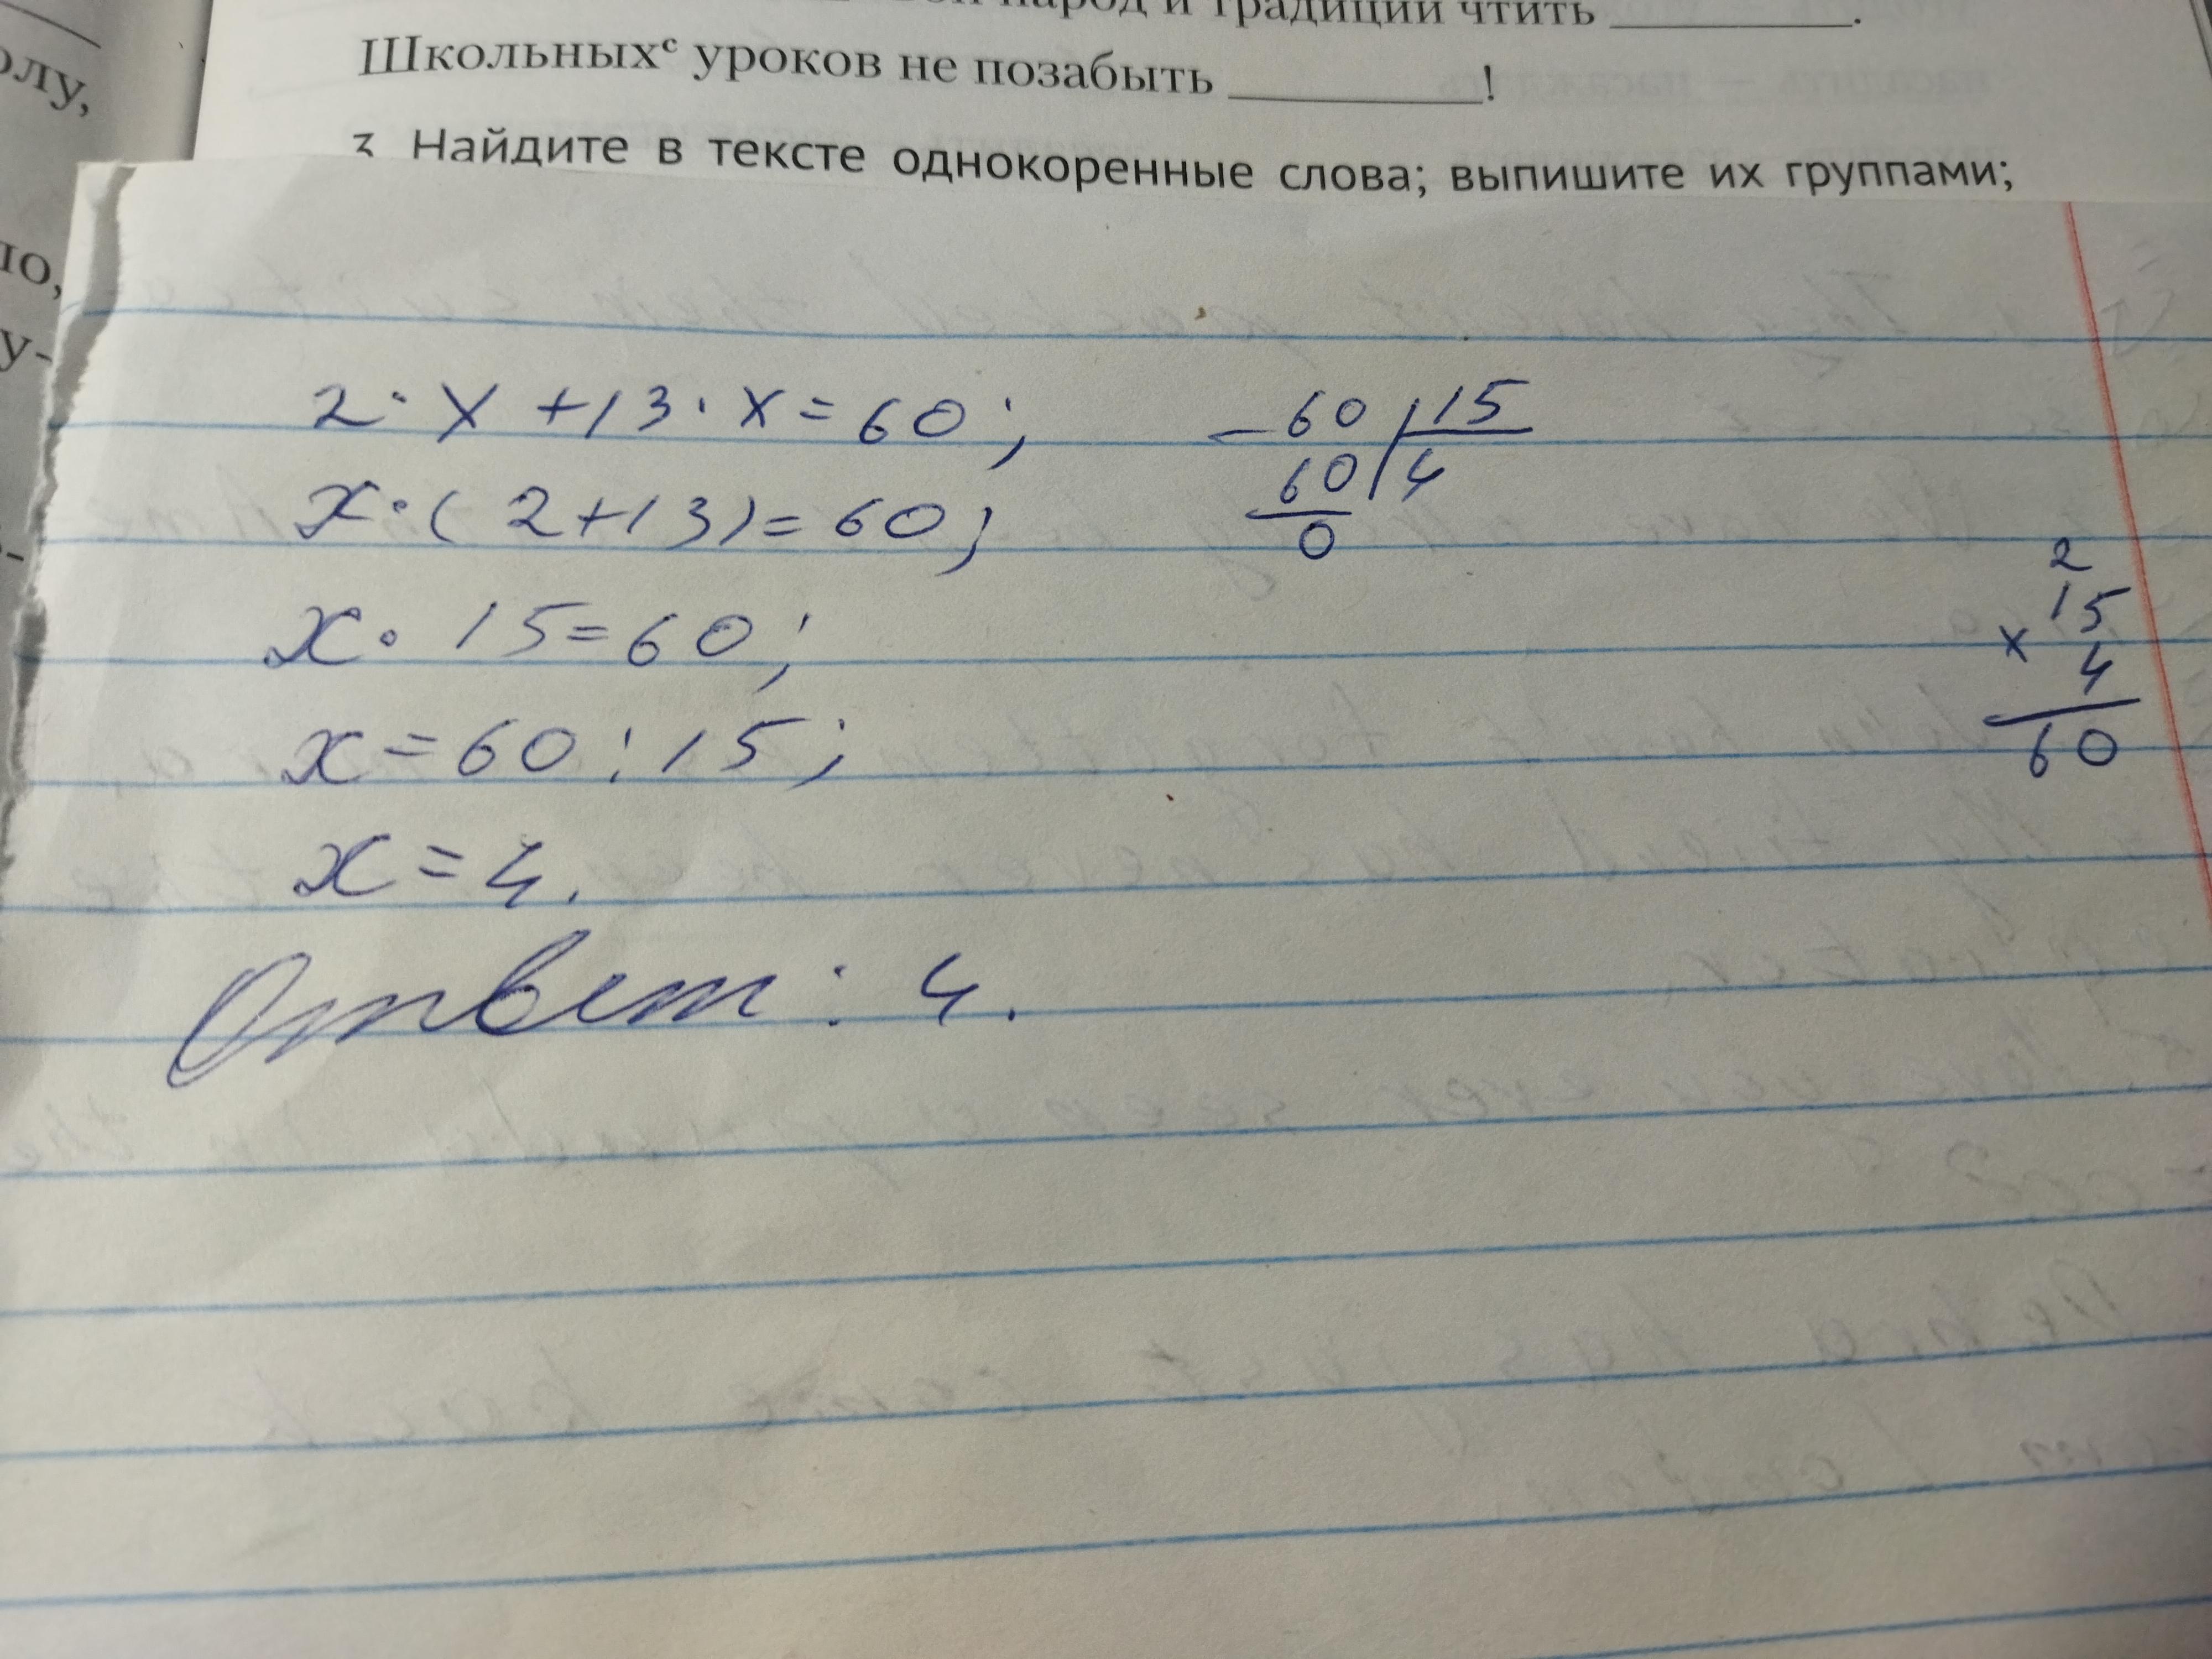 народ и традиции чтить __________.
Школьныхᶜ уроков не позабыть __________!
3. Найдите в тексте однокоренные слова; выпишите их группами;
2 · x + 13 · x = 60;
x · (2 + 13) = 60;
x · 15 = 60;
x = 60 : 15;
x = 4.
Ответ: 4.
− 60 | 15
60 | 4
0
2
15
× 4
60